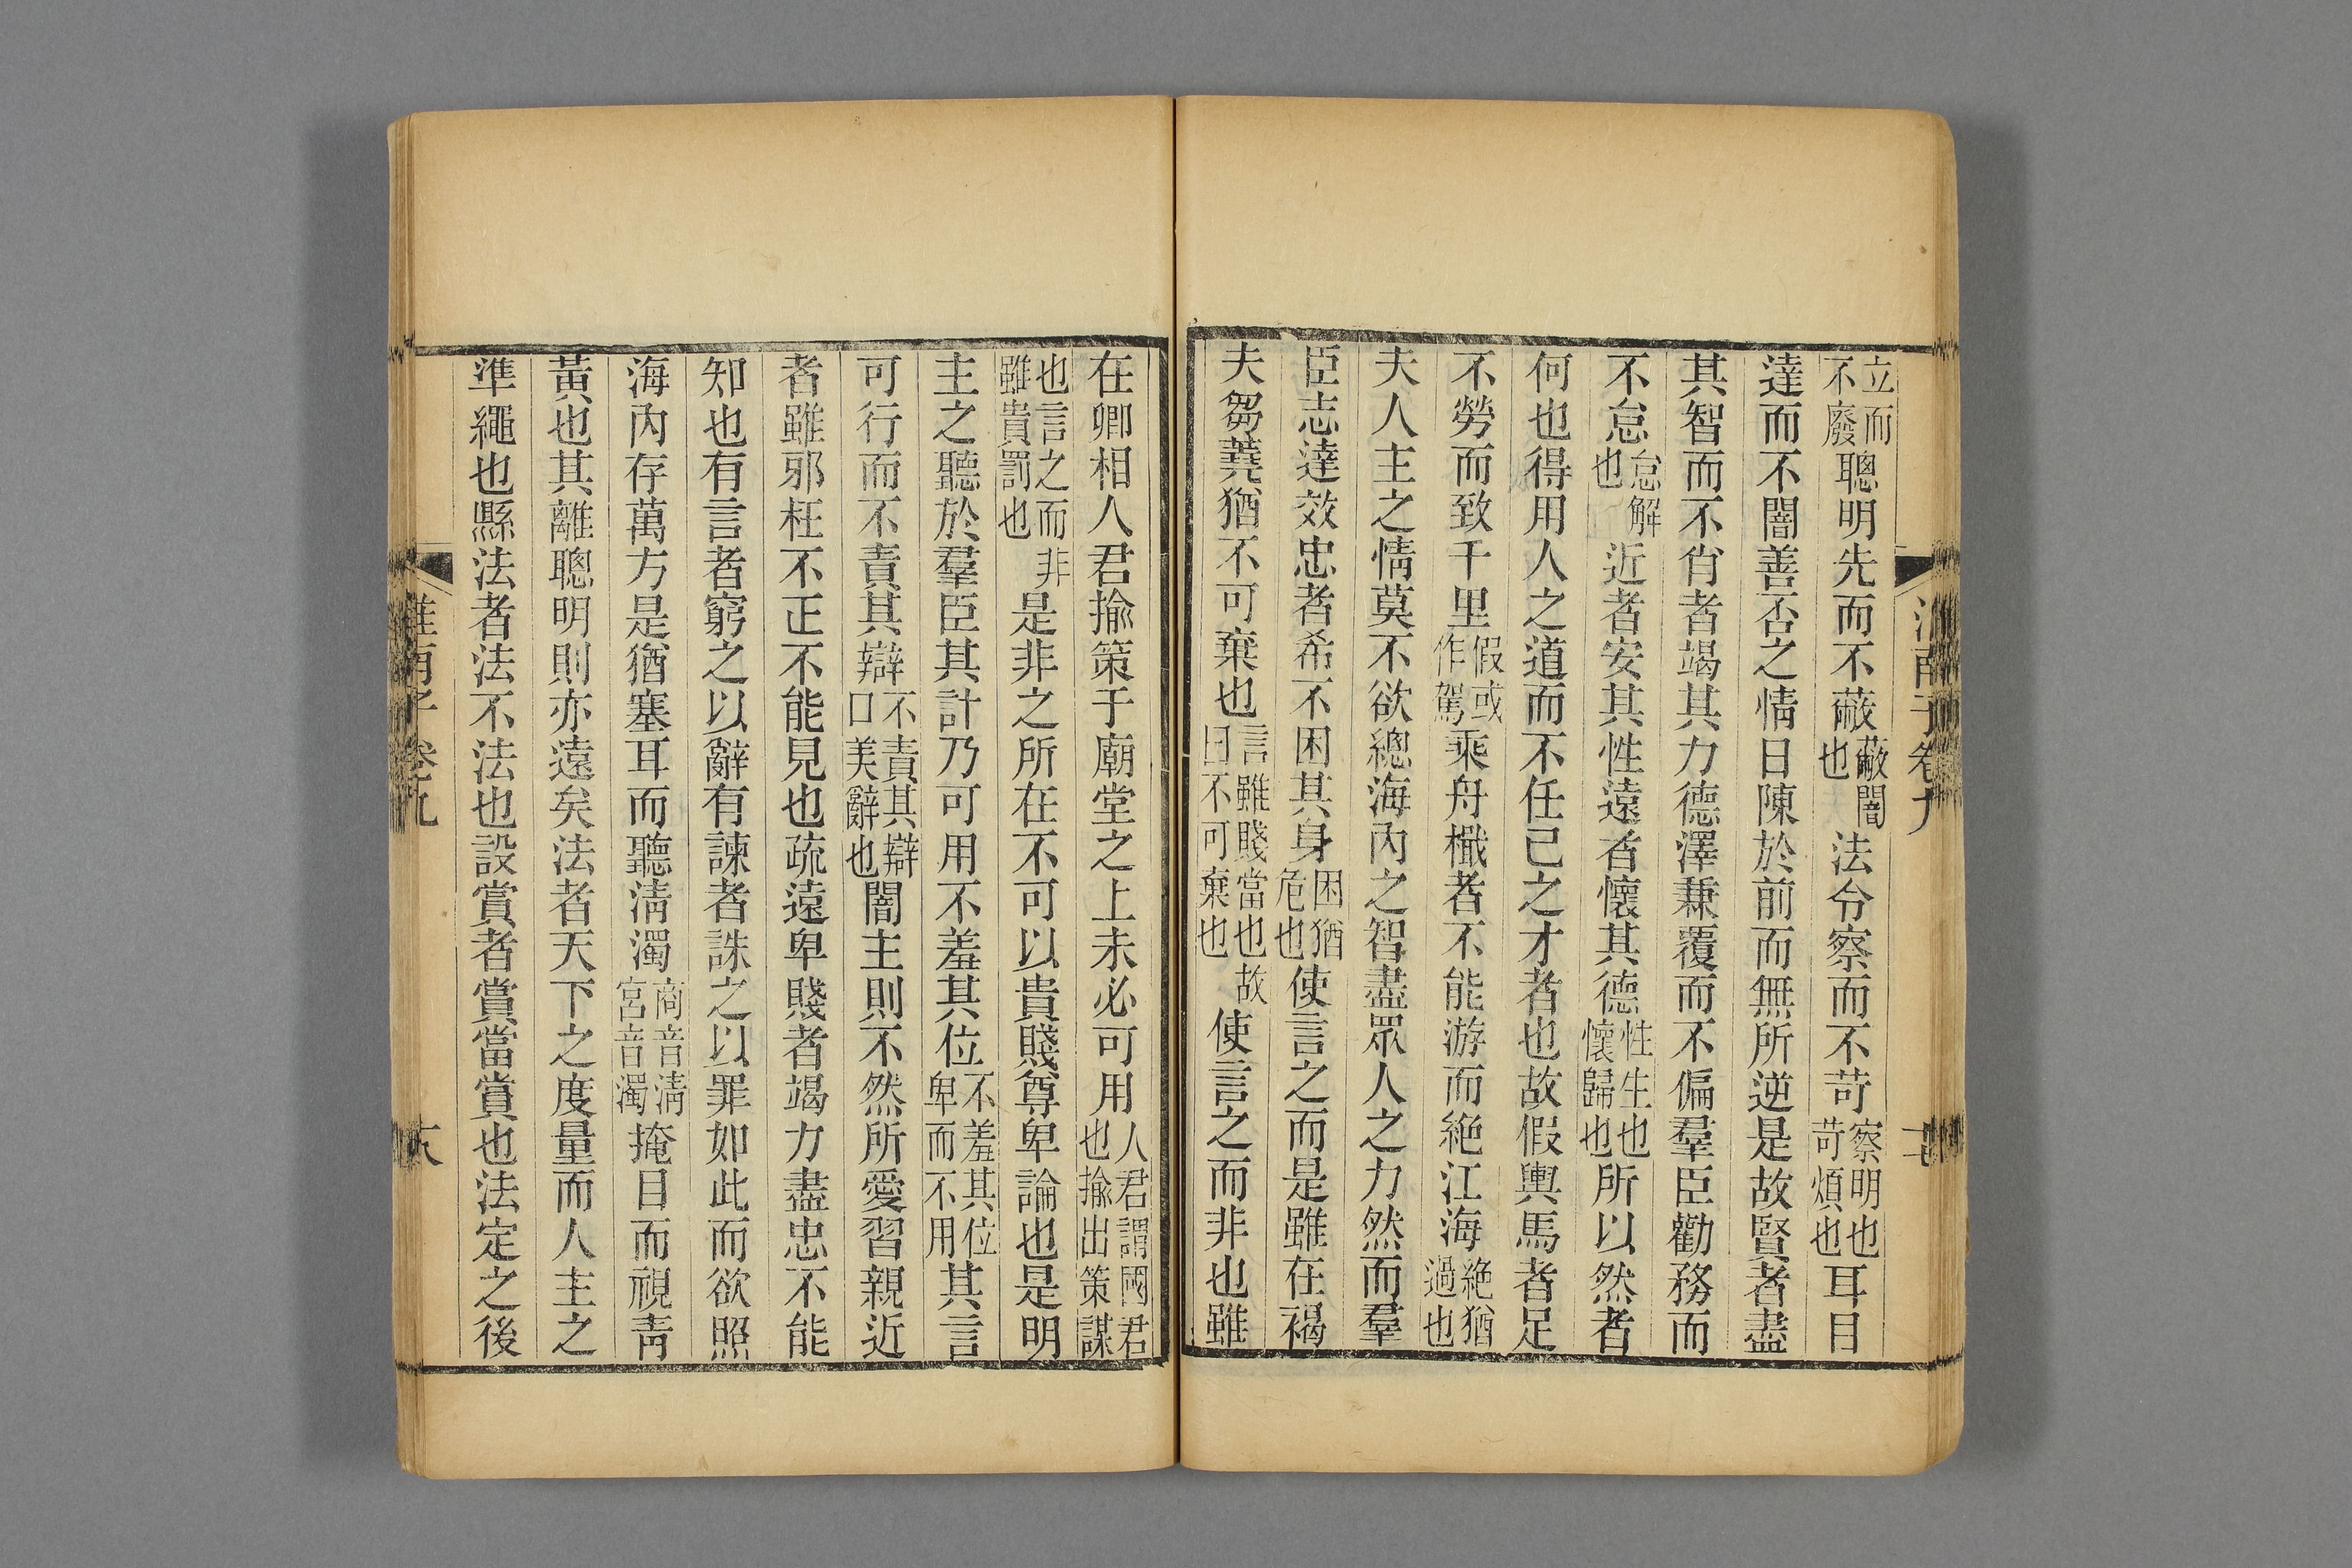 淮南子卷九
立而不廢聰明先而不蔽蔽闇也法令察而不苛察明也苛煩也耳目
達而不闇善否之情日陳於前而無所逆是故賢者盡
其智而不肖者竭其力德澤兼覆而不偏羣臣勸務而
不怠怠解也近者安其性遠者懷其德性生也懷歸也所以然者
何也得用人之道而不任己之才者也故假輿馬者足
不勞而致千里假或作駕乘舟檝者不能游而絶江海絶猶過也
夫人主之情莫不欲總海內之智盡眾人之力然而羣
臣志達效忠者希不困其身困猶危也使言之而是雖在褐
夫芻蕘猶不可棄也言雖賤當也故曰不可棄也使言之而非也雖
在卿相人君揄策于廟堂之上未必可用人君謂國君也揄出策謀
也言之而非雖貴罰也是非之所在不可以貴賤尊卑論也是明
主之聽於羣臣其計乃可用不羞其位不羞其位卑而不用其言
可行而不責其辯不責其辯口美辭也闇主則不然所愛習親近
者雖邪枉不正不能見也疏遠卑賤者竭力盡忠不能
知也有言者窮之以辭有諫者誅之以罪如此而欲照
海內存萬方是猶塞耳而聽淸濁商音淸宮音濁掩目而視靑
黃也其離聰明則亦遠矣法者天下之度量而人主之
準繩也縣法者法不法也設賞者賞當賞也法定之後
淮南子 卷九